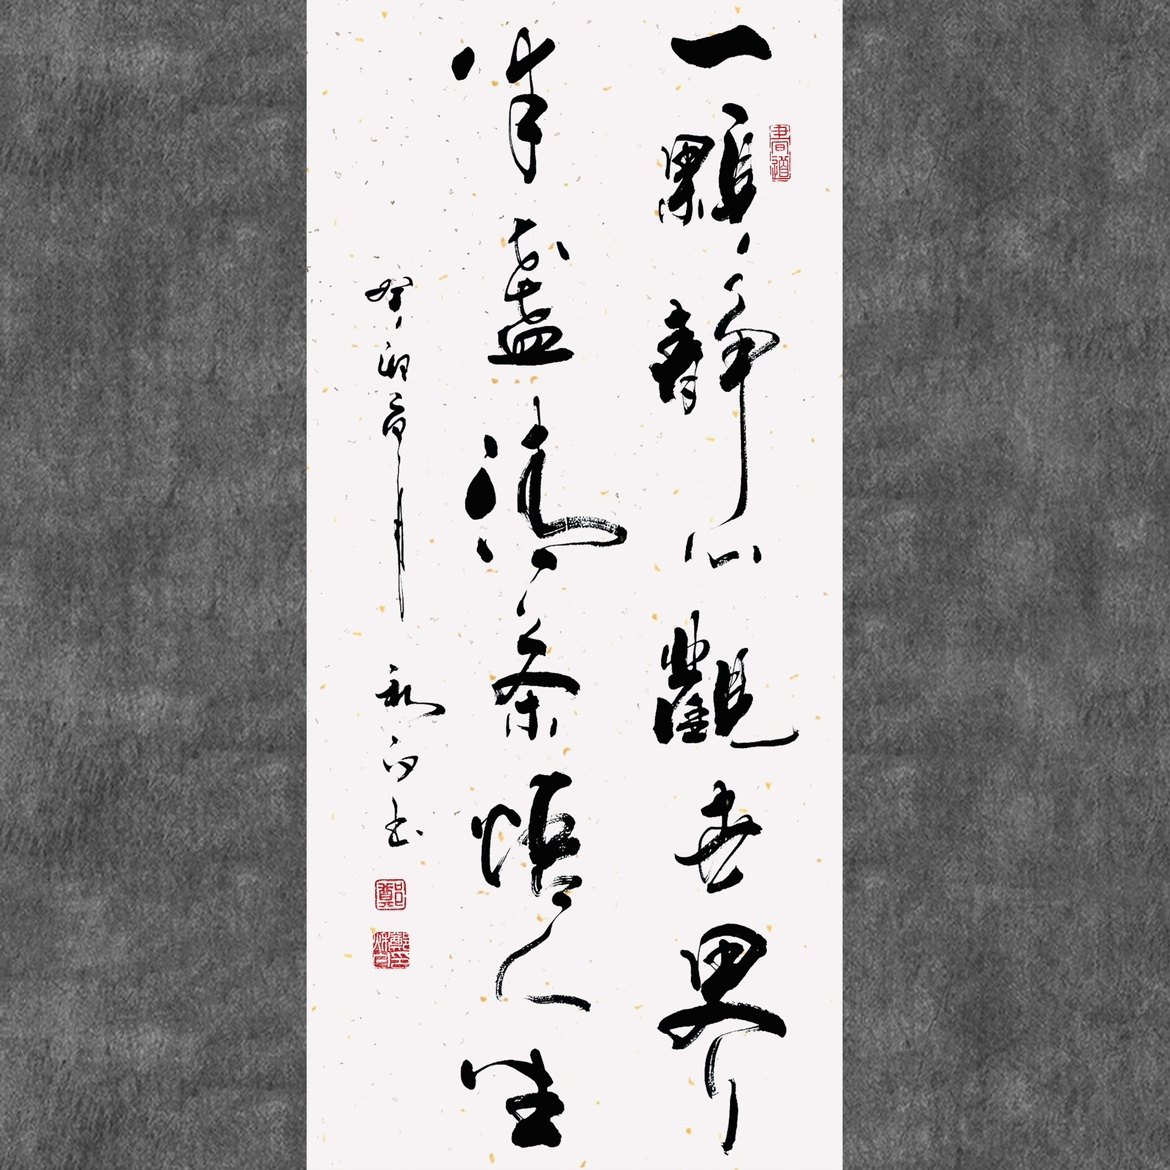 一顆靜心觀世界
半盞清茶悟人生
癸卯首月
書道